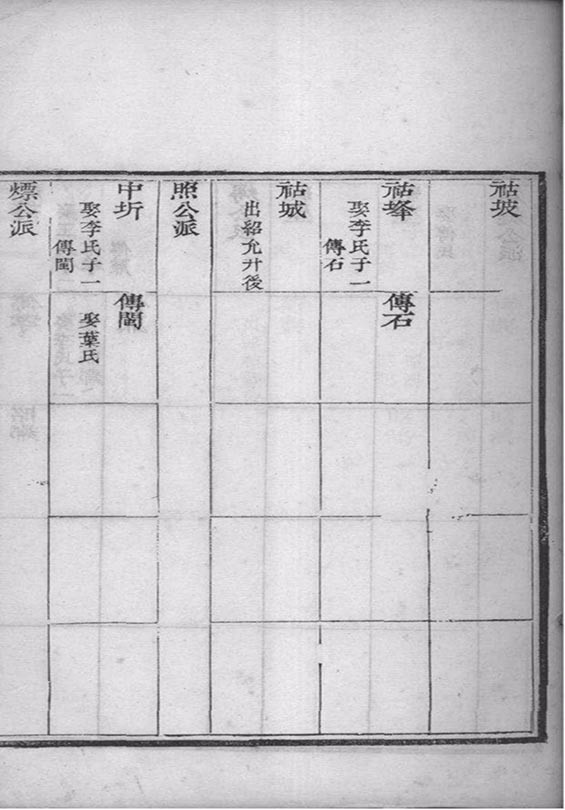 祜坡
祜峰
娶李氏子一
傳石
傳石
祜城
出紹允升後
照公派
中圻
娶李氏子一
傳閩
傳閩
娶葉氏
熛公派